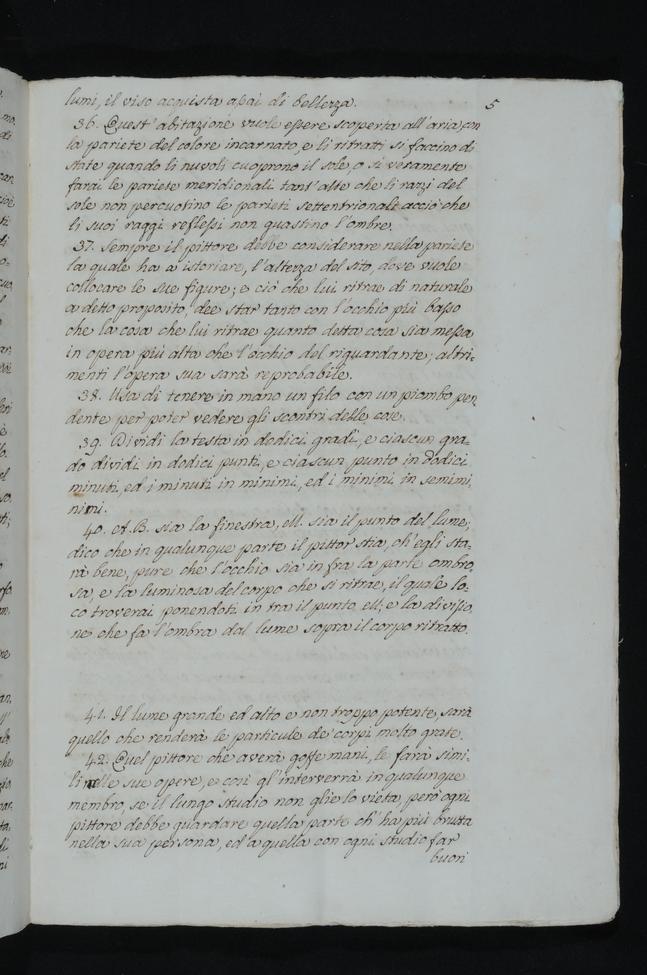 lumi, il viso acquista assai di bellezza.
5
36. Quest' abitazione vuole essere scoperta all'aria, con
la pariete del colore incarnato, e li ritratti si faccino di
state quando li nuvoli cuoprono il sole, o si veramente
farai le pariete meridionali tant'alte che li razzi del
sole non percuotino le parieti settentrionale acciò che
li suoi raggi reflessi non guastino l'ombre.
37. Sempre il pittore debbe considerare nella pariete
la quale ha a istoriare, l'altezza del sito, dove vuole
collocare le sue figure; e ciò che lui ritrae di naturale
a detto proposito, dee star tanto con l'occhio più basso
che la cosa che lui ritrae quanto detta cosa sia messa
in opera più alta che l'occhio del riguardante; altri-
menti l'opera sua sarà reprobabile.
38. Usa di tenere in mano un filo con un piombo pen
dente per poter vedere gli scontri delle cose.
39. Dividi la testa in dodici gradi, e ciascun gra-
do dividi in dodici punti, e ciascun punto in dodici
minuti, ed i minuti in minimi, ed i minimi in semimi
nimi.
40. A.B. sia la finestra, M. sia il punto del lume,
dico che in qualunque parte il pittor stia, ch'egli sta-
rà bene, pure che l'occhio sia in fra la parte ombro
sa, e la luminosa del corpo che si ritrae, il quale lo-
co troverai ponendoti in tra il punto M; e la divisio
ne che fa l'ombra dal lume sopra il corpo ritratto.
41. Il lume grande ed alto e non troppo potente, sarà
quello che renderà le particule de' corpi molto grate.
42. Quel pittore che averà goffe mani, le farà simi-
li nelle sue opere, e così gl'interverrà in qualunque
membro, se il lungo studio non glie lo vieta, però ogni
pittore debbe guardare quella parte ch'ha più brutta
nella sua persona, ed a quella con ogni studio far
buoni